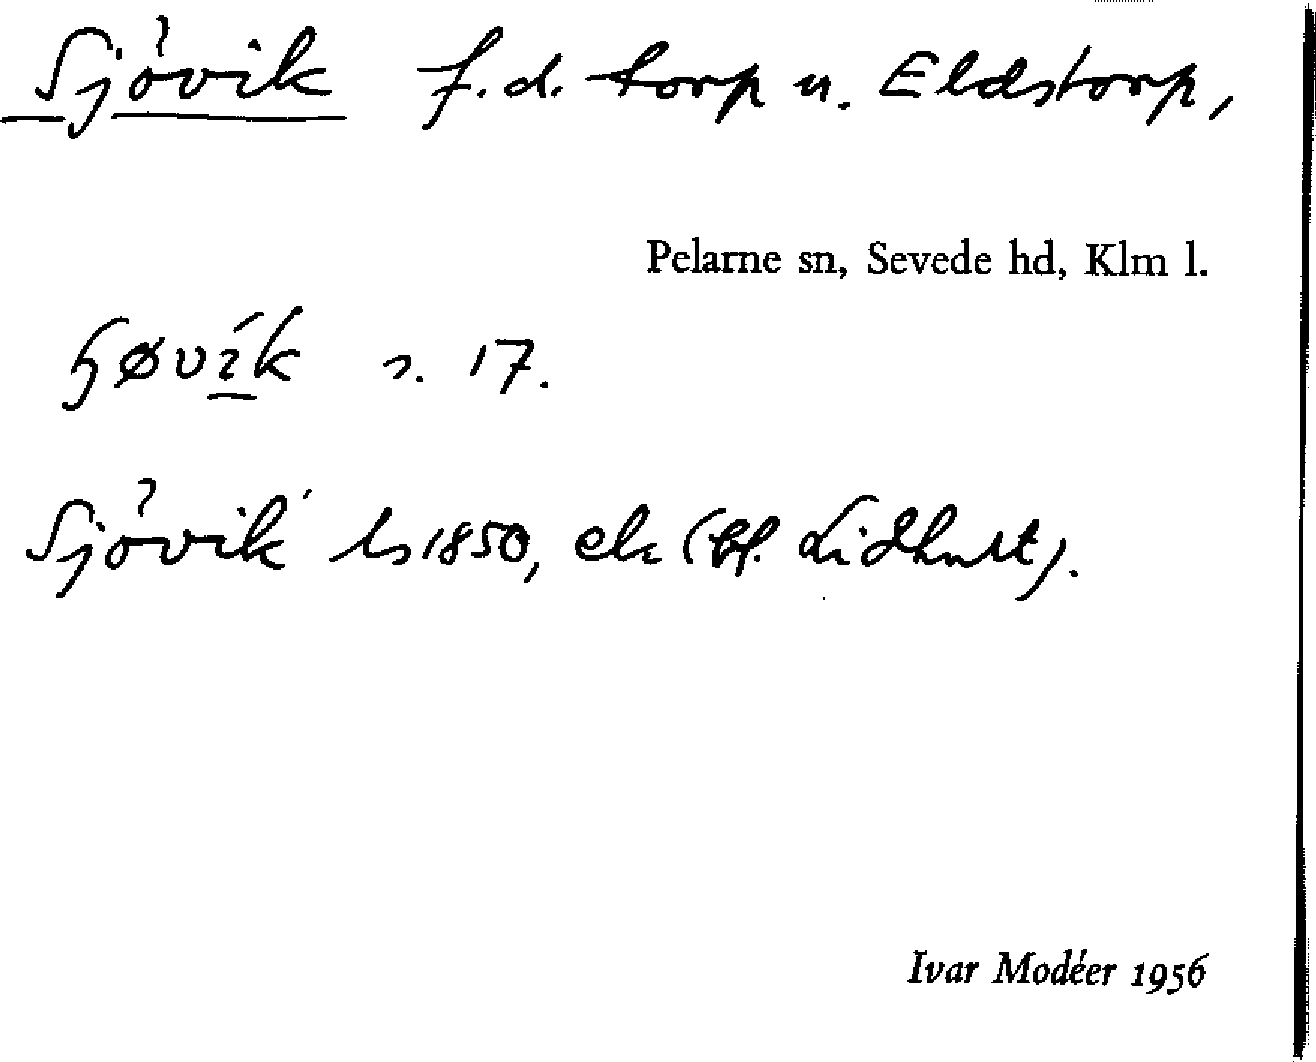 Sjövik f.d. torp u. Eldstorp,
Pelarne sn, Sevede hd, Klm l.
s. 17.
Sjövik ls 1850, ek (bf. Lidhult).
Ivar Modéer 1956